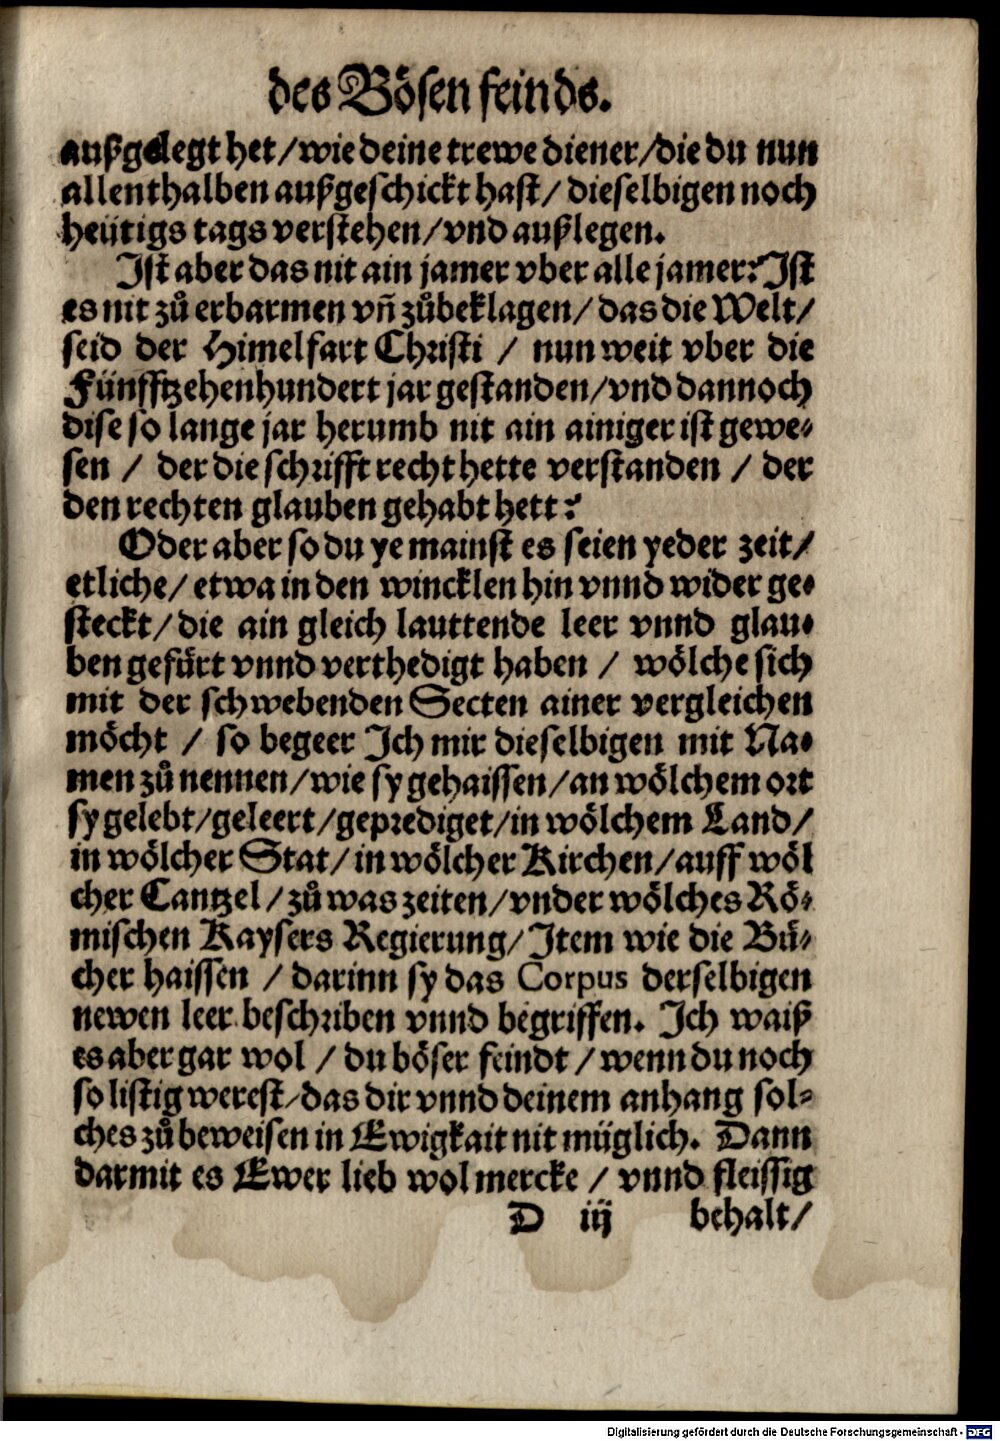 des Bösen feinds.
außgelegt het/wie deine trewe diener/die du nun
allenthalben außgeschickt hast/ dieselbigen noch
heütigs tags verstehen/vnd außlegen.
Ist aber das nit ain jamer vber alle jamer? Ist
es nit zů erbarmen vñ zůbeklagen/ das die Welt/
seid der Himelfart Christi / nun weit vber die
Fünfftzehenhundert jar gestanden/vnd dannoch
dise so lange jar herumb nit ain ainiger ist gewe⸗
sen / der die schrifft recht hette verstanden / der
den rechten glauben gehabt hett?
Oder aber so du ye mainst es seien yeder zeit/
etliche/ etwa in den wincklen hin vnnd wider ge⸗
steckt/ die ain gleich lauttende leer vnnd glau⸗
ben gefürt vnnd verthedigt haben / wölche sich
mit der schwebenden Secten ainer vergleichen
möcht / so begeer Ich mir dieselbigen mit Na⸗
men zů nennen/wie sy gehaissen/an wölchem ort
sy gelebt/geleert/geprediget/in wölchem Land/
in wölcher Stat/ in wölcher Kirchen/auff wöl
cher Cantzel/zů was zeiten/vnder wölches Rö⸗
mischen Kaysers Regierung/Item wie die Bü⸗
cher haissen / darinn sy das Corpus derselbigen
newen leer beschriben vnnd begriffen. Ich waiß
es aber gar wol / du böser feindt / wenn du noch
so listig werest/das dir vnnd deinem anhang sol⸗
ches zů beweisen in Ewigkait nit müglich. Dann
darmit es Ewer lieb wol mercke / vnnd fleissig
D iij behalt/
Digitalisierung gefördert durch die Deutsche Forschungsgemeinschaft - DFG